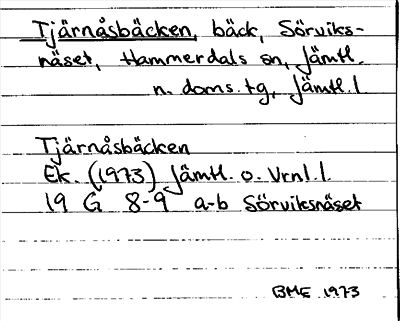 Tjärnåsbäcken, bäck, Sörviks-
näset, Hammerdals sn, Jämtl.
n. doms. tg, Jämtl. l.
Tjärnåsbäcken
Ek. (1973) Jämtl. o. Vrnl. l.
19 G 8-9 a-b Sörviksnäset
BME 1973